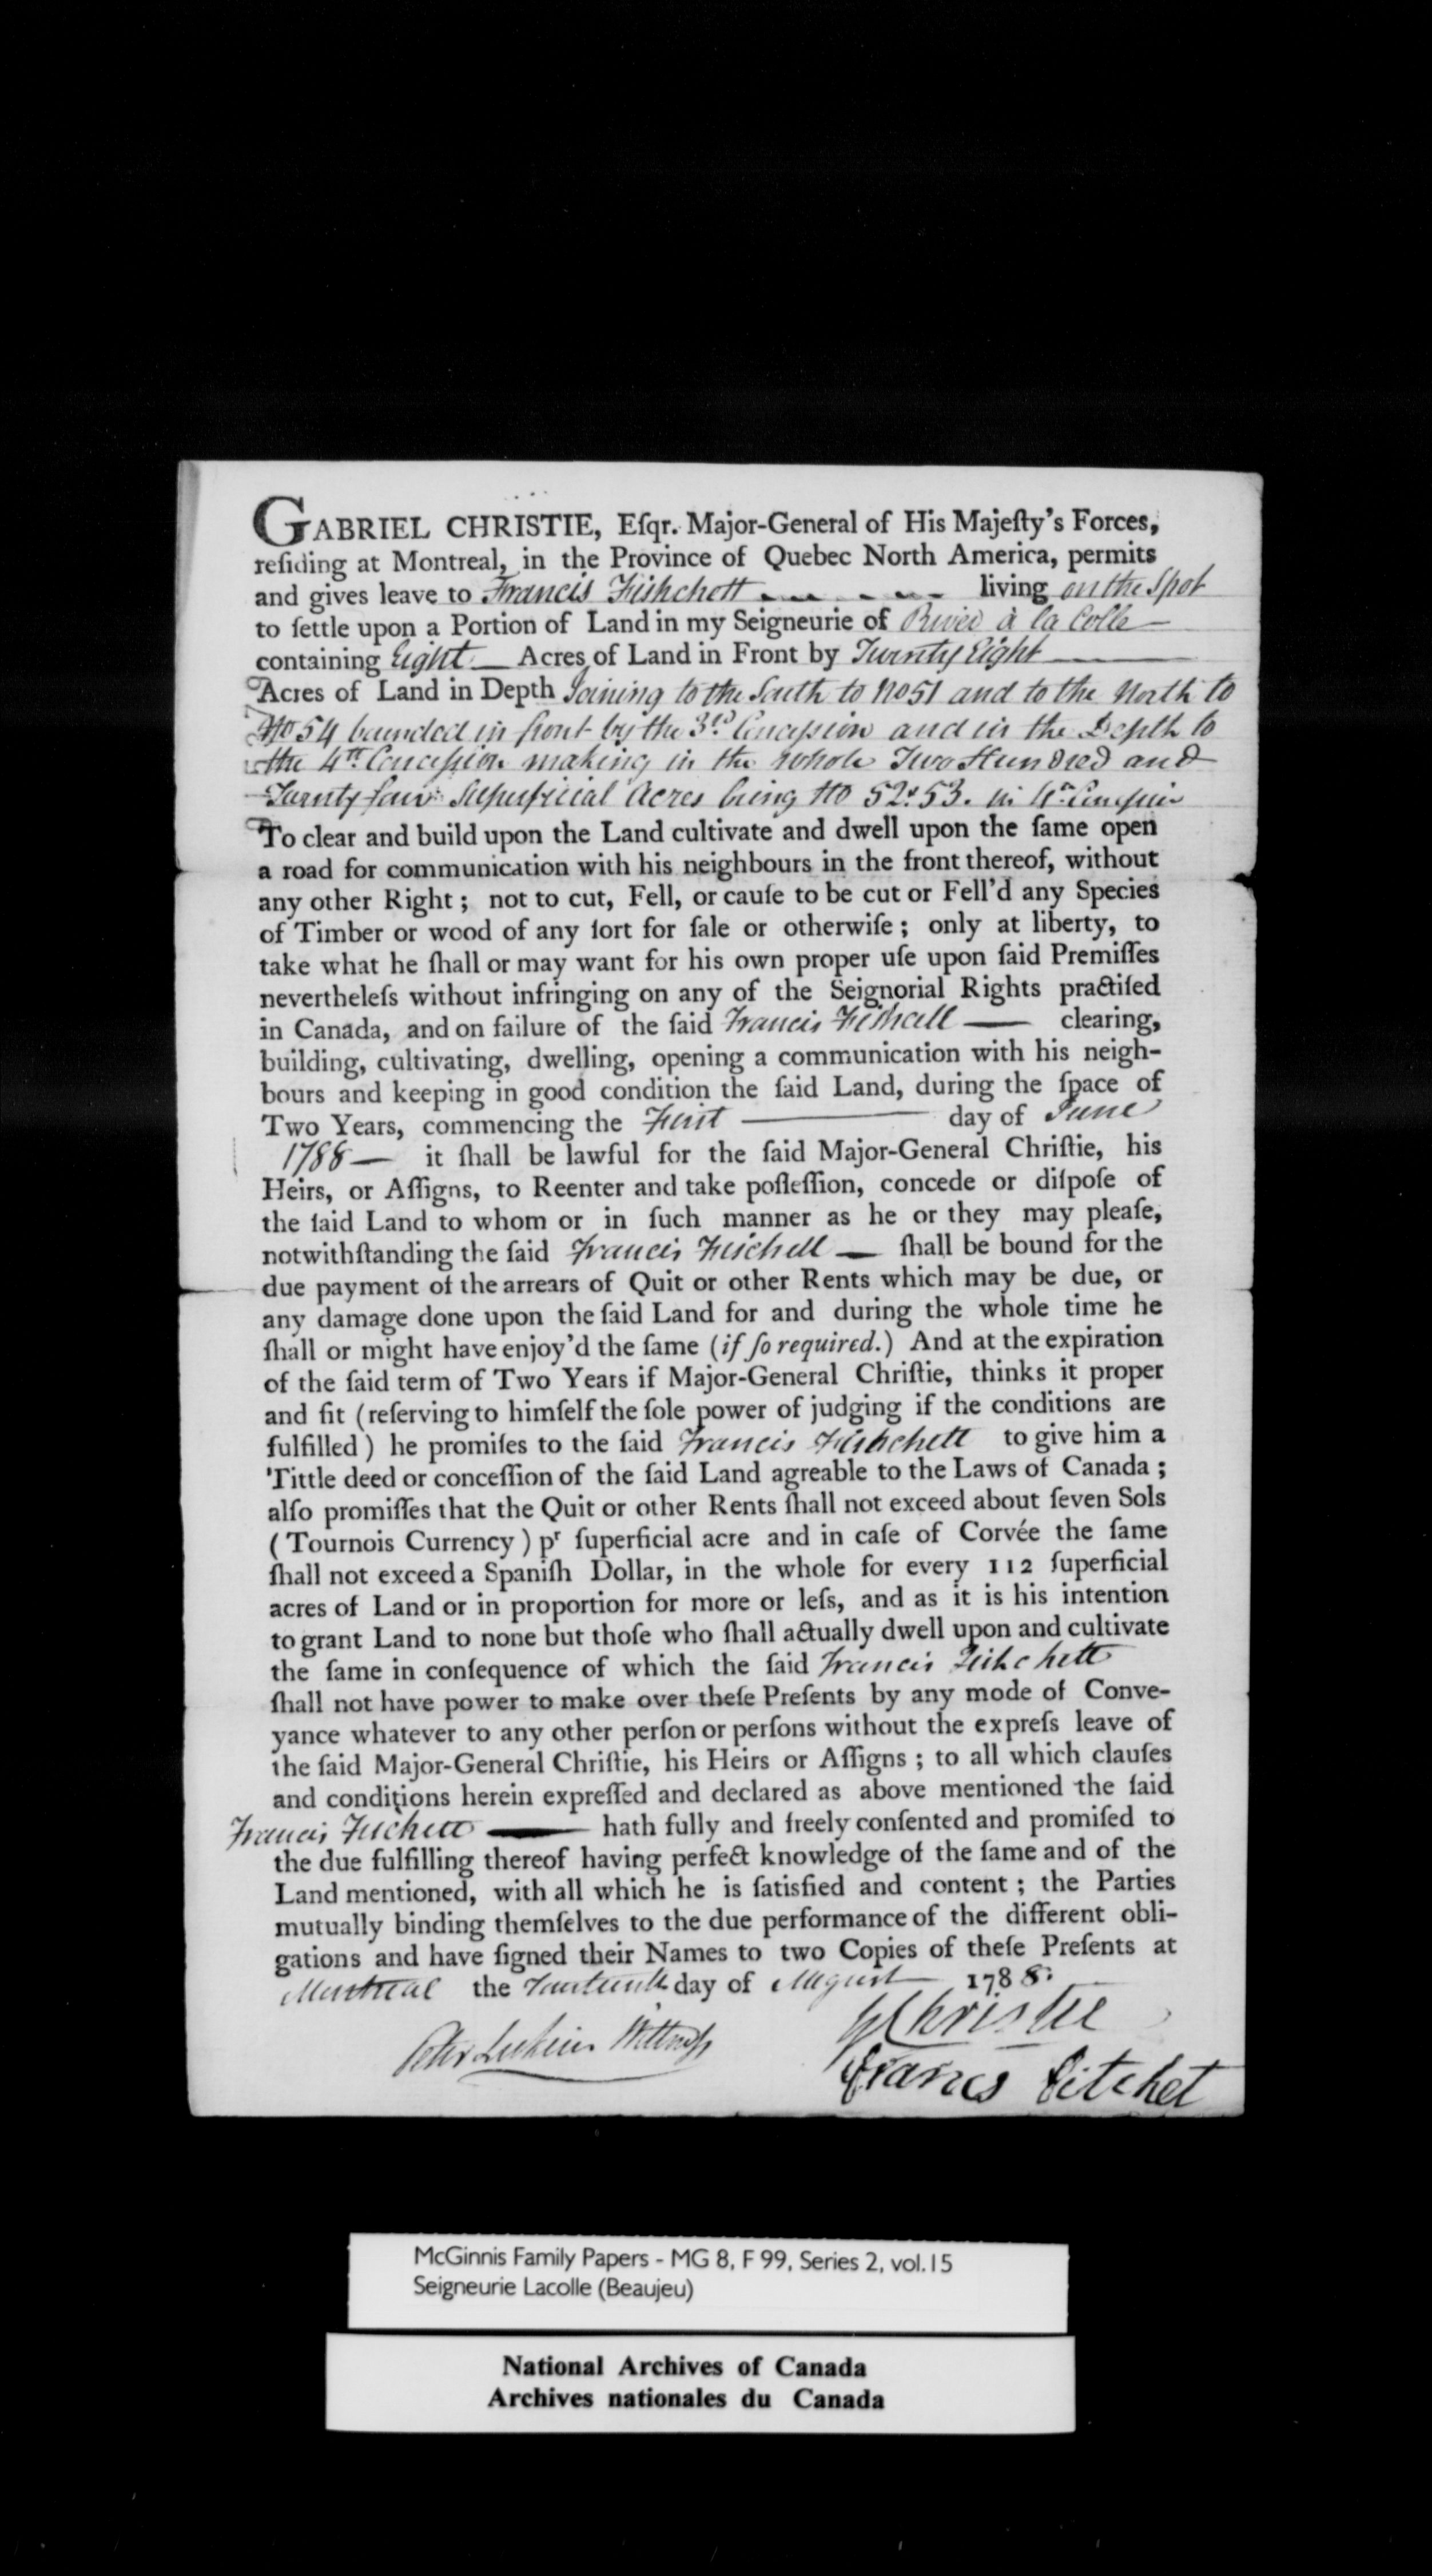 GABRIEL CHRISTIE, Eſqr. Major-General of His Majeſty's Forces,
reſiding at Montreal, in the Province of Quebec North America, permits
and gives leave to Francis Fishchett living on the Spot
to ſettle upon a Portion of Land in my Seigneurie of River à la Colle —
containing Eight — Acres of Land in Front by Twenty Eight —
Acres of Land in Depth Joining to the South to No 51 and to the North to
No 54 bounded in front by the 3rd Concession and in the Depth to
the 4th Concession making in the whole Two Hundred and
Twenty four Superficial Acres being No 52 & 53. in
To clear and build upon the Land cultivate and dwell upon the ſame open
a road for communication with his neighbours in the front thereof, without
any other Right; not to cut, Fell, or cauſe to be cut or Fell'd any Species
of Timber or wood of any ſort for ſale or otherwiſe; only at liberty, to
take what he ſhall or may want for his own proper uſe upon ſaid Premiſſes
nevertheleſs without infringing on any of the Seignorial Rights practiſed
in Canada, and on failure of the ſaid Francis — clearing,
building, cultivating, dwelling, opening a communication with his neigh-
bours and keeping in good condition the ſaid Land, during the ſpace of
Two Years, commencing the First — day of June
1788 — it ſhall be lawful for the ſaid Major-General Chriſtie, his
Heirs, or Aſſigns, to Reenter and take poſſeſſion, concede or diſpoſe of
the ſaid Land to whom or in ſuch manner as he or they may pleaſe,
notwithſtanding the ſaid Francis — ſhall be bound for the
due payment of the arrears of Quit or other Rents which may be due, or
any damage done upon the ſaid Land for and during the whole time he
ſhall or might have enjoy'd the ſame (if ſo required.) And at the expiration
of the ſaid term of Two Years if Major-General Chriſtie, thinks it proper
and fit (reſerving to himſelf the ſole power of judging if the conditions are
fulfilled) he promiſes to the ſaid Francis Fishchett to give him a
Tittle deed or conceſſion of the ſaid Land agreable to the Laws of Canada;
alſo promiſſes that the Quit or other Rents ſhall not exceed about ſeven Sols
(Tournois Currency) pr ſuperficial acre and in caſe of Corvée the ſame
ſhall not exceed a Spaniſh Dollar, in the whole for every 112 ſuperficial
acres of Land or in proportion for more or leſs, and as it is his intention
to grant Land to none but thoſe who ſhall actually dwell upon and cultivate
the ſame in conſequence of which the ſaid Francis Fishchett
ſhall not have power to make over theſe Preſents by any mode of Conve-
yance whatever to any other perſon or perſons without the expreſs leave of
the ſaid Major-General Chriſtie, his Heirs or Aſſigns; to all which clauſes
and conditions herein expreſſed and declared as above mentioned the ſaid
Francis — hath fully and freely conſented and promiſed to
the due fulfilling thereof having perfect knowledge of the ſame and of the
Land mentioned, with all which he is ſatisfied and content; the Parties
mutually binding themſelves to the due performance of the different obli-
gations and have ſigned their Names to two Copies of theſe Preſents at
Montreal the Fourteenth day of August 1788:
GChristie
Peter Lukin Wittness
Francs Fitchet
McGinnis Family Papers - MG 8, F 99, Series 2, vol.15
Seigneurie Lacolle (Beaujeu)
National Archives of Canada
Archives nationales du Canada